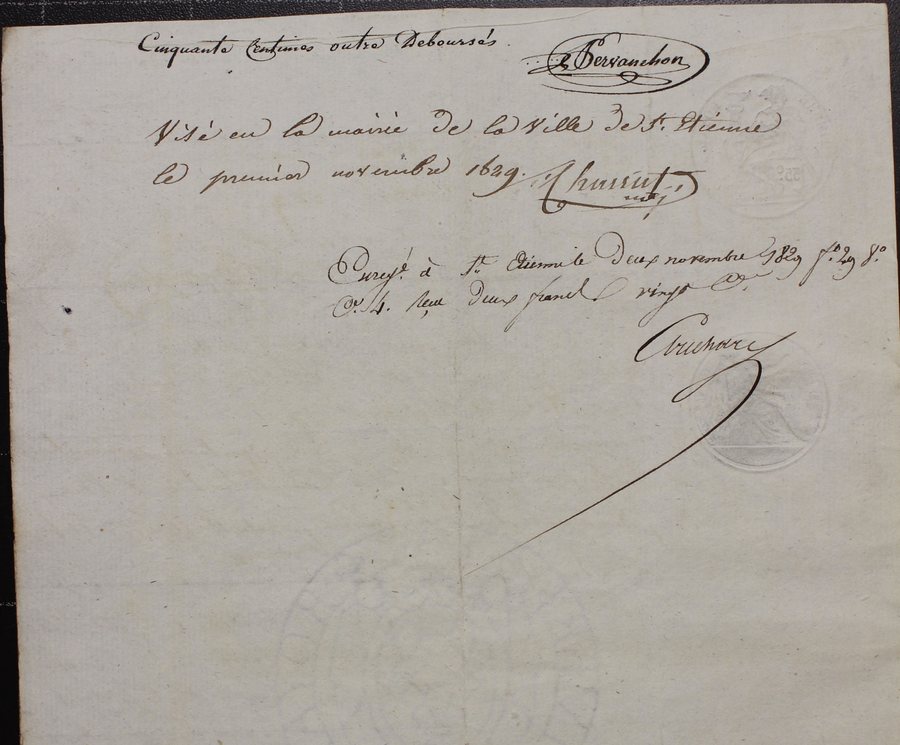 Cinquante Centimes outre Deboursés. Pervanchon
Visé en la mairie de la ville de St. Etienne
le premier novembre 1829.
Enregé. à St. Etienne le Deux novembre 1829 fo. 29 vo.
Ce. 4. Reçu Deux francs vingt Cmes